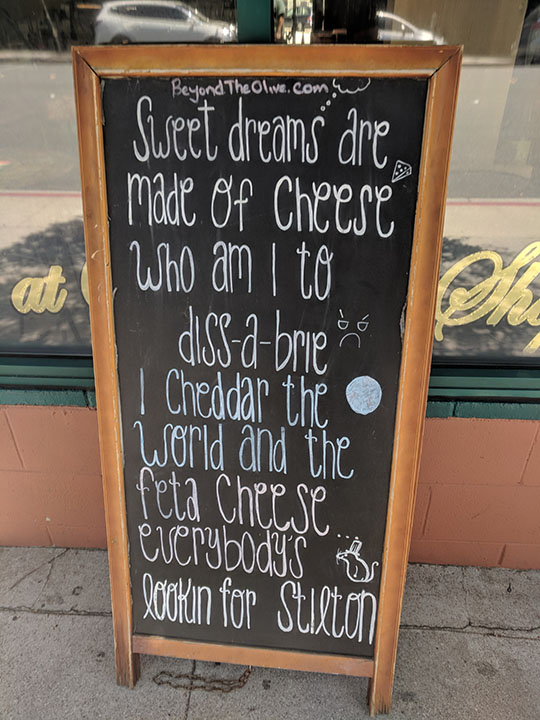 BeyondTheOlive.com
Sweet dreams are
made of cheese
who am I to
diss-a-brie
I cheddar the
world and the
feta cheese
everybody's
lookin for Stilton
at